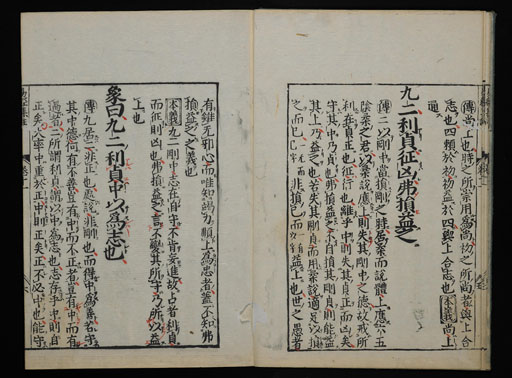 傳尚上也時之所崇用為尚初之所尚者與上合
志也四賴於初初益於四與上合志也本義尚上
通
九二利貞征凶弗損益之
傳二以剛中當損剛之時居柔而說體上應六五
陰柔之君以柔說應上則失其剛中之德故戒所
利在貞正也征行也離乎中則失其貞正而凶矣
守其中乃貞也弗損益之不自損其剛貞則能益
其上乃益之也若失其剛貞而用柔說適足以損
之而已非損己而益上也世之愚者
有雖无邪心而唯知竭力順上為忠者蓋不知弗
損益之之義也
本義九二剛中志在自守不肯妄進故占者利貞
而征則凶也弗損益之言不變其所守乃所以益
上也
象曰九二利貞中以為志也
傳九居二非正也處說非剛也而得中為善若守
其中德何有不善豈有中而不正者豈有中而有
過者二所謂利貞謂以中為志也志存乎中則自
正矣大率中重於正中則正矣正不必中也能守